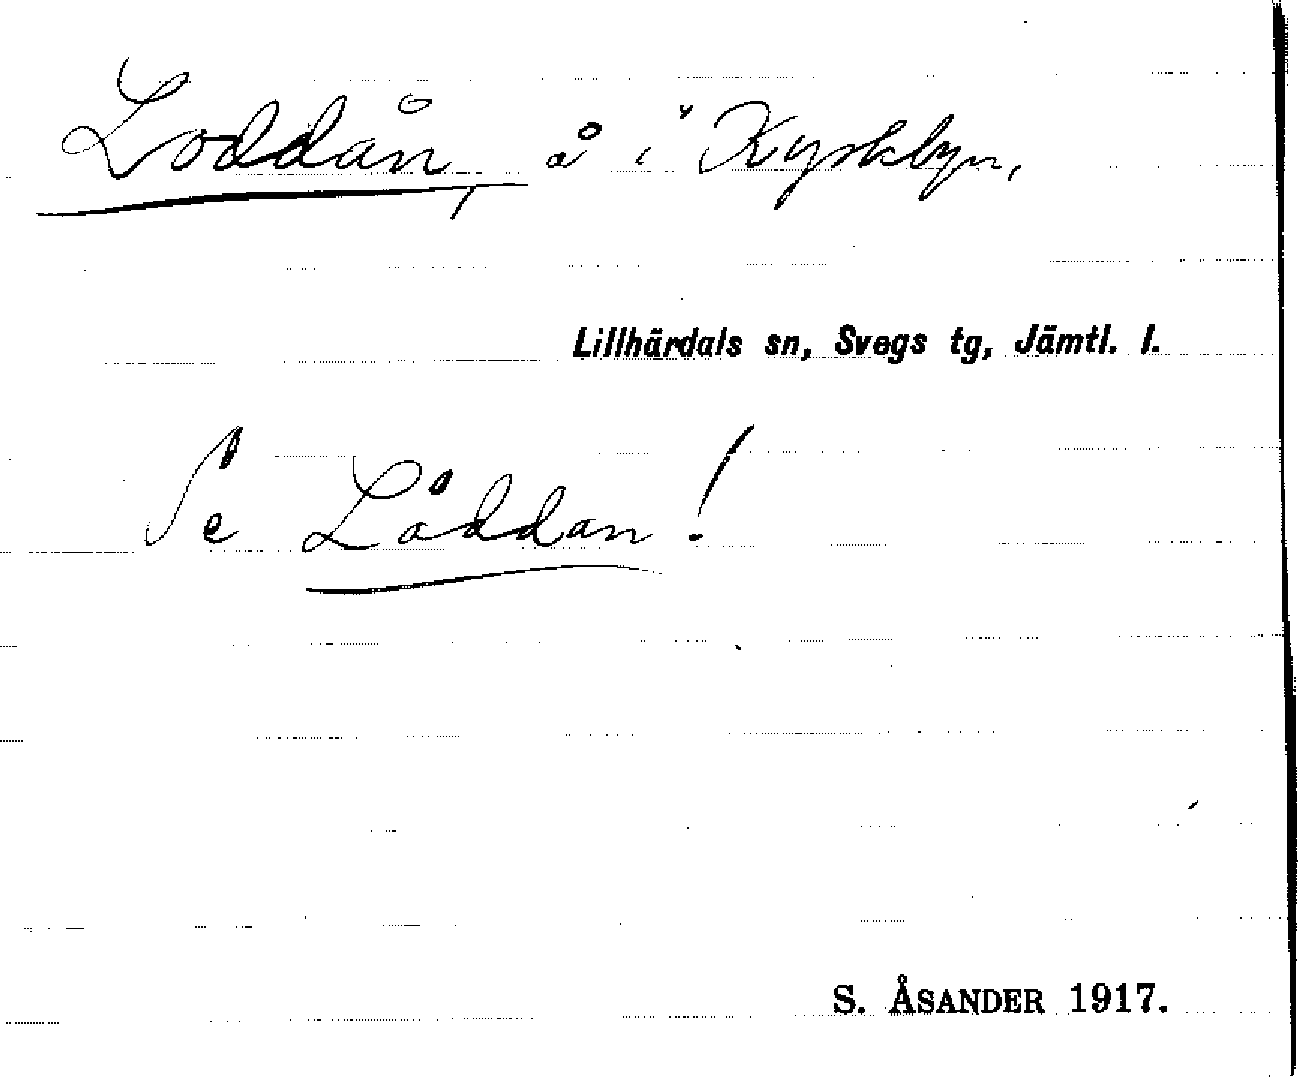 Loddån, å i Kyrkbyn,
Lillhärdals sn, Svegs tg, Jämtl. l.
Se Låddan!
S. ÅSANDER 1917.